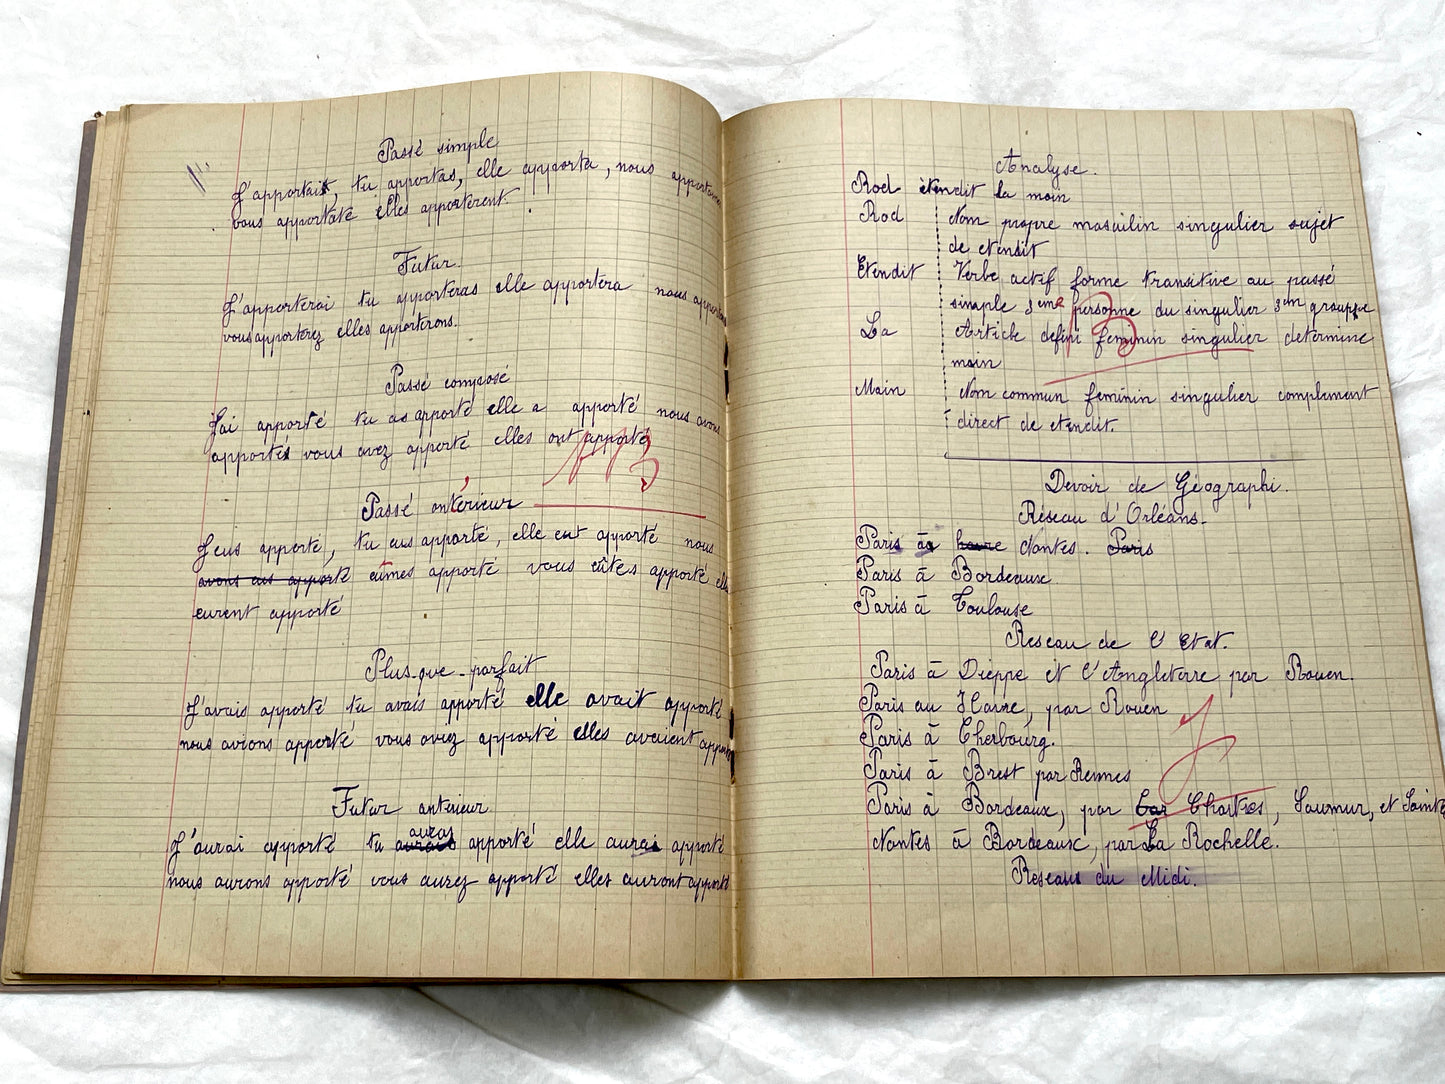 Passé simple
J'apportait, tu apportas, elle apporta, nous
vous apportate elles apportèrent.
Futur.
J'apporterai tu apporteras elle apportera nous
vous apporterez elles apporterons.
Passé composé
J'ai apporté tu as apporté elle a apporté nous avons
apportés vous avez apporté elles ont apporté
Passé antérieur
J'eus apporté, tu eus apporté, elle eut apporté nous
avons eus apporté eûmes apporté vous eûtes apporté elles
eurent apporté
Plus-que-parfait
J'avais apporté tu avais apporté elle avait apporté
nous avions apporté vous aviez apporté elles avaient
Futur antérieur
J'aurai apporté tu auras apporté elle aurai apporté
nous aurons apporté vous aurez apporté elles auront apporté
Analyse.
Rod étendit la main
Rod Nom propre masculin singulier sujet
de etendit
Etendit Verbe actif forme transitive au passé
simple 3eme personne du singulier 3em groupe
La Article défini feminin singulier determine
main
Main Nom commun feminin singulier complement
direct de etendit.
Devoir de Géographi.
Réseau d'Orléans.
Paris à Nantes. Paris
Paris à Bordeaux
Paris à Toulouse
Reseau de l'Etat.
Paris à Dieppe et l'Angleterre par Rouen.
Paris au Havre, par Rouen
Paris à Cherbourg.
Paris à Brest par Rennes
Paris à Bordeaux, par Chartres, Saumur, et
Nantes à Bordeaux, par La Rochelle.
Reseaus du Midi.